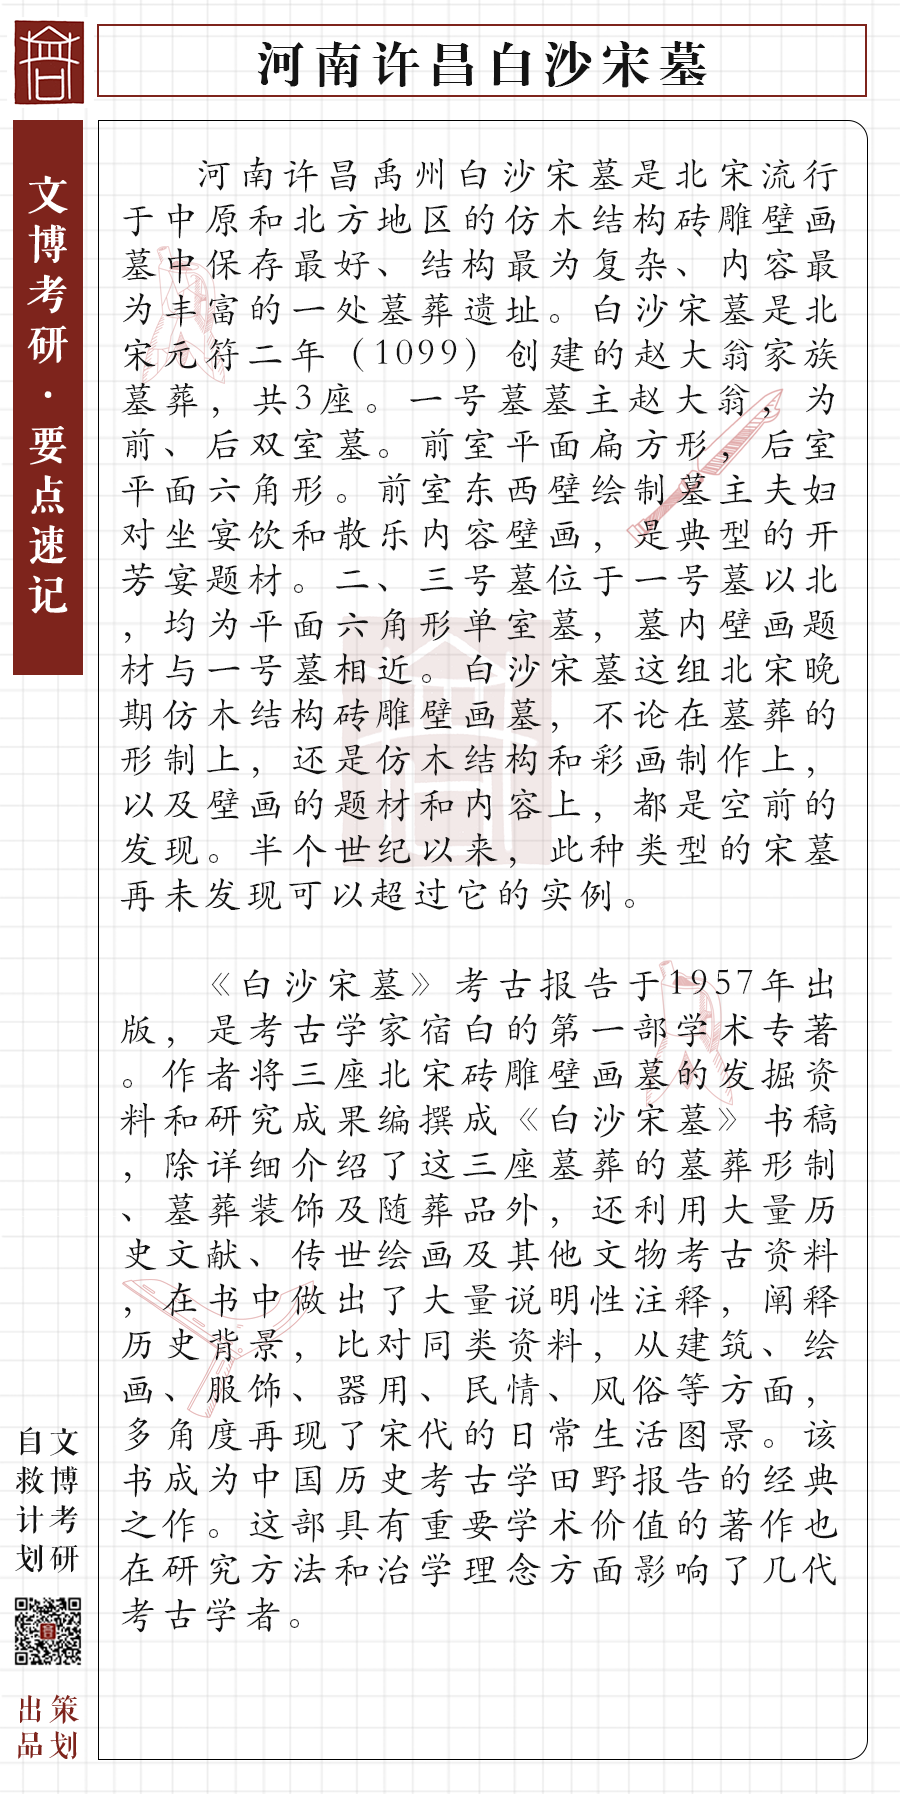 河南许昌白沙宋墓
文博考研·要点速记
河南许昌禹州白沙宋墓是北宋流行
于中原和北方地区的仿木结构砖雕壁画
墓中保存最好、结构最为复杂、内容最
为丰富的一处墓葬遗址。白沙宋墓是北
宋元符二年（1099）创建的赵大翁家族
墓葬，共3座。一号墓墓主赵大翁，为
前、后双室墓。前室平面扁方形，后室
平面六角形。前室东西壁绘制墓主夫妇
对坐宴饮和散乐内容壁画，是典型的开
芳宴题材。二、三号墓位于一号墓以北
，均为平面六角形单室墓，墓内壁画题
材与一号墓相近。白沙宋墓这组北宋晚
期仿木结构砖雕壁画墓，不论在墓葬的
形制上，还是仿木结构和彩画制作上，
以及壁画的题材和内容上，都是空前的
发现。半个世纪以来，此种类型的宋墓
再未发现可以超过它的实例。
《白沙宋墓》考古报告于1957年出
版，是考古学家宿白的第一部学术专著
。作者将三座北宋砖雕壁画墓的发掘资
料和研究成果编撰成《白沙宋墓》书稿
，除详细介绍了这三座墓葬的墓葬形制
、墓葬装饰及随葬品外，还利用大量历
史文献、传世绘画及其他文物考古资料
，在书中做出了大量说明性注释，阐释
历史背景，比对同类资料，从建筑、绘
画、服饰、器用、民情、风俗等方面，
多角度再现了宋代的日常生活图景。该
书成为中国历史考古学田野报告的经典
之作。这部具有重要学术价值的著作也
在研究方法和治学理念方面影响了几代
考古学者。
文博考研
自救计划
策划
出品